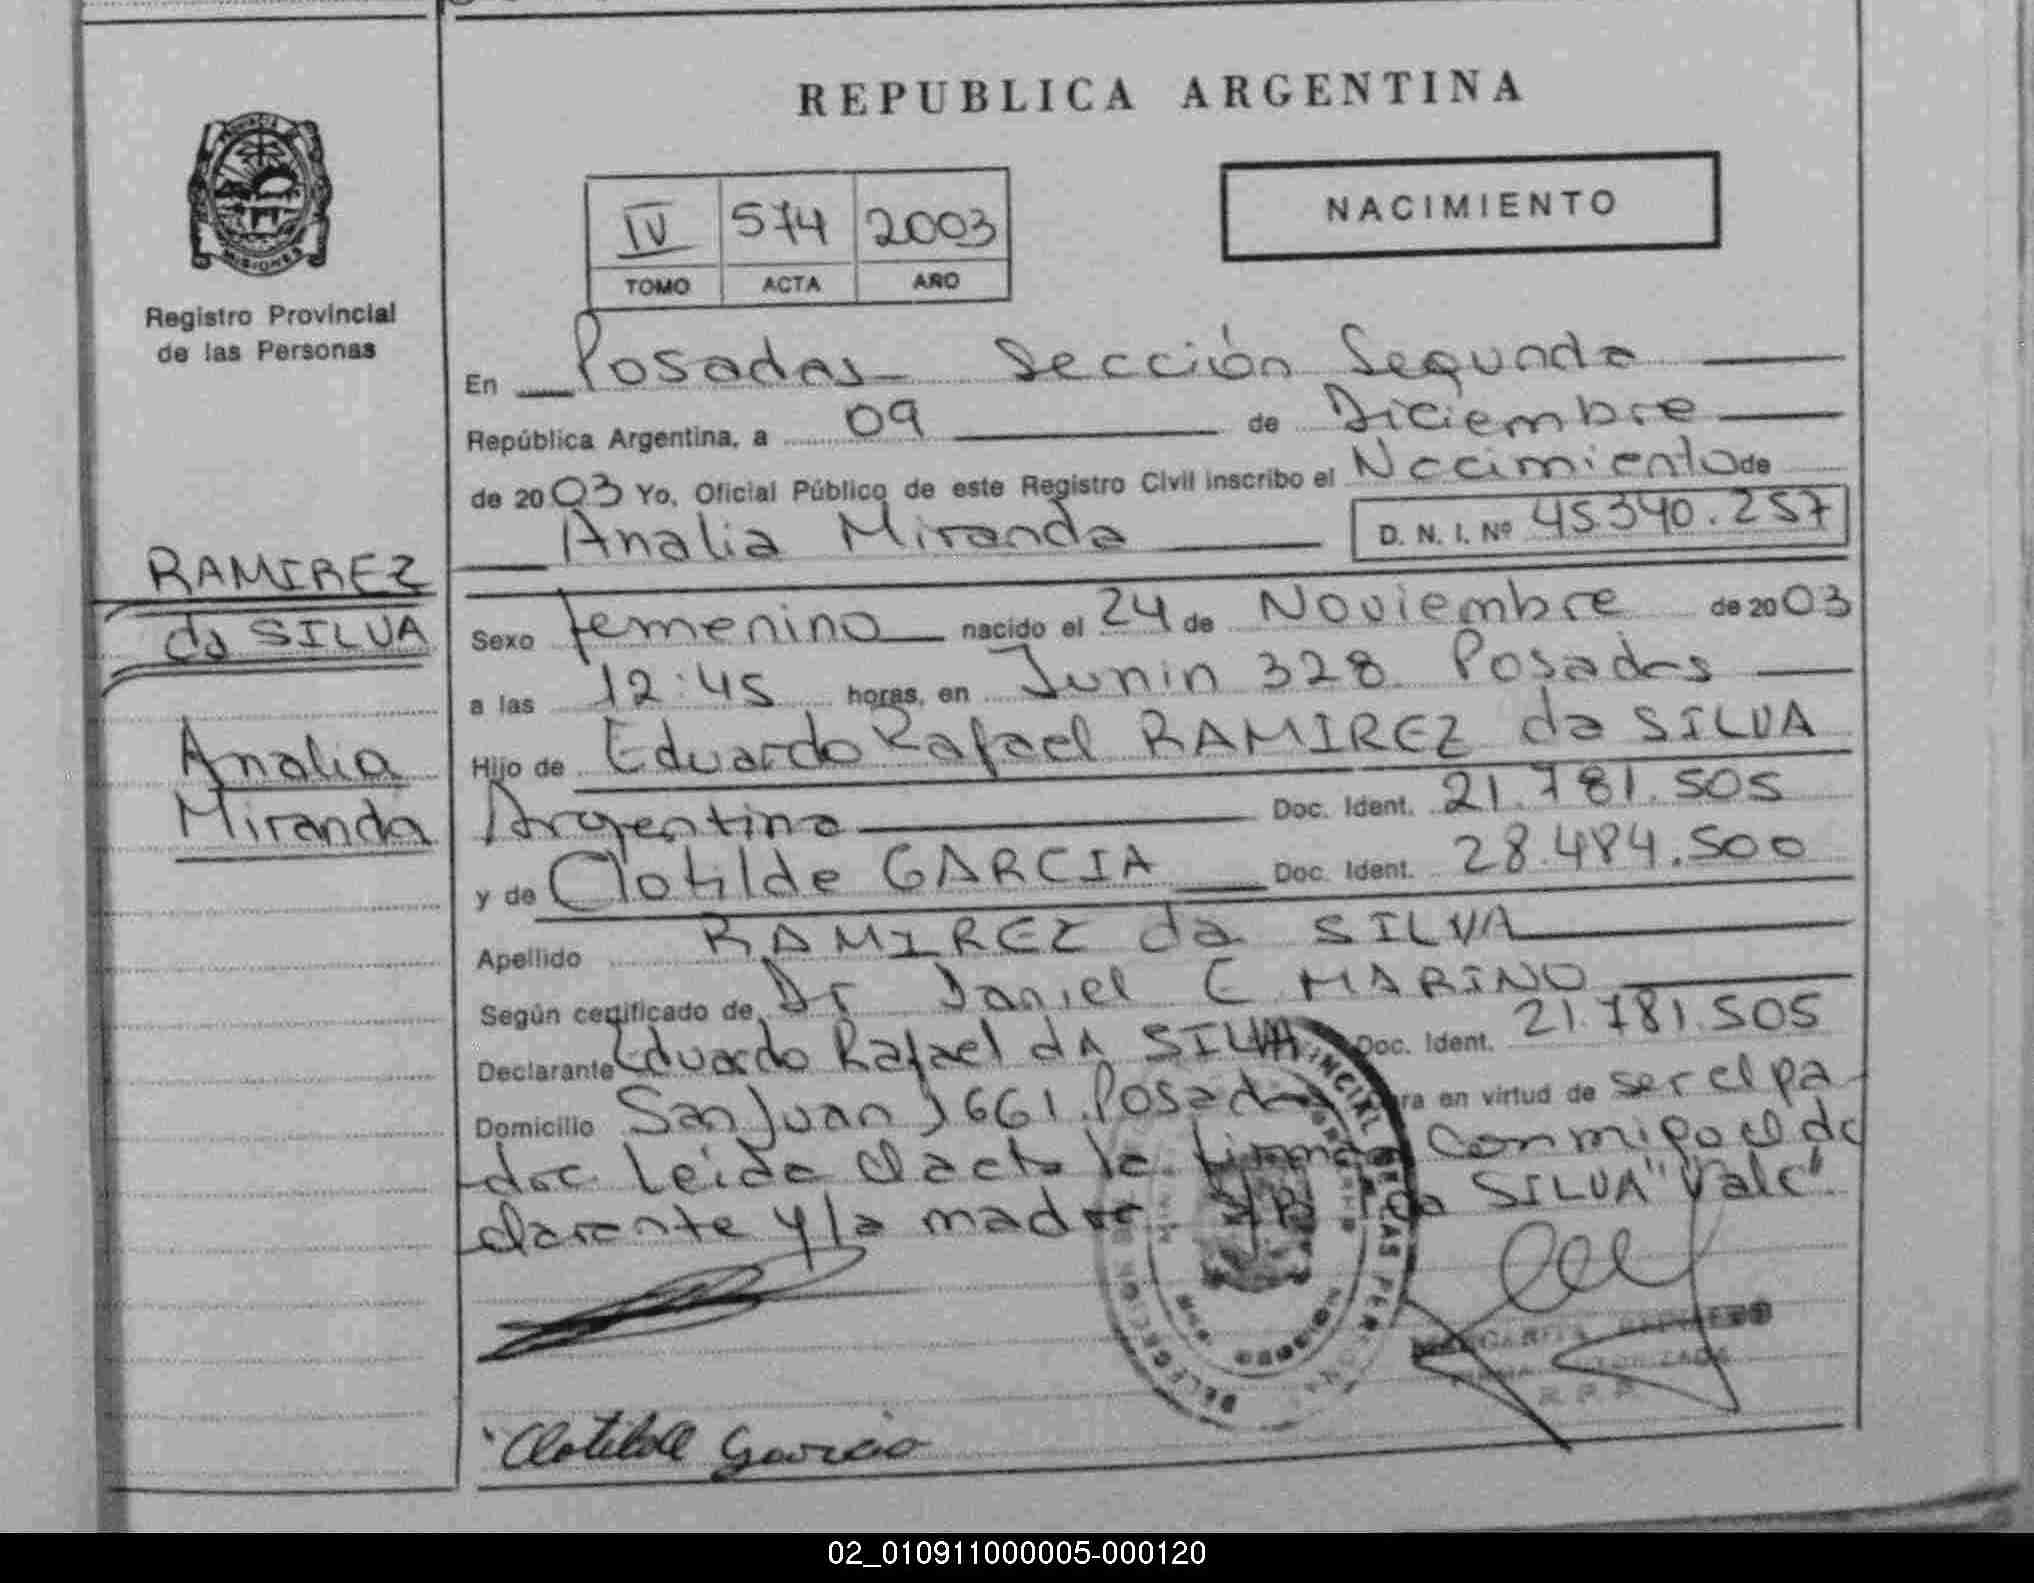 REPUBLICA ARGENTINA
PROVINCIA DE
MISIONES
Registro Provincial
de las Personas
NACIMIENTO
IV 574 2003
TOMO ACTA AÑO
En Posadas Sección Segunda
República Argentina, a 09 de Diciembre
de 2003 Yo, Oficial Público de este Registro Civil inscribo el Nacimiento de
Analia Miranda D. N. I. Nº 45.340.257
RAMIREZ
da SILVA
Analia
Miranda
Sexo femenino nacido el 24 de Noviembre de 2003
a las 12:45 horas, en Junin 328 Posadas
Hijo de Eduardo Rafael RAMIREZ da SILVA
Argentina Doc. Ident. 21.781.505
y de Clotilde GARCIA Doc. Ident. 28.484.500
Apellido RAMIREZ da SILVA
Según certificado de Dr Daniel E MARINO
Declarante Eduardo Rafael dA SILVA Doc. Ident. 21.781.505
Domicilio San Juan 1661 Posadas en virtud de ser el pa
dre leida el acta la firman conmigo el de
clarante y la madre da SILVA "Vale"
Clotilde Garcia
02_010911000005-000120